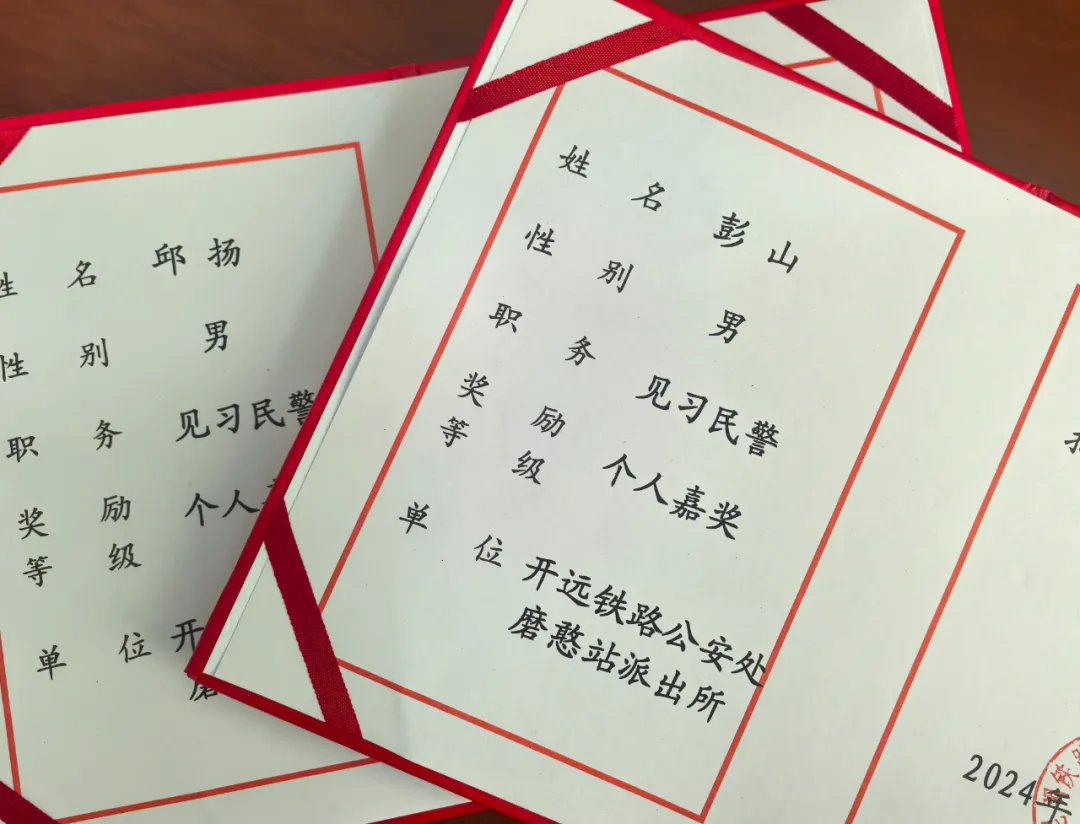 姓 名 邱扬
性 别 男
职 务 见习民警
奖 励
等 级 个人
单 位 开
姓 名 彭山
性 别 男
职 务 见习民警
奖 励
等 级 个人嘉奖
单 位 开远铁路公安处
磨憨站派出所
2024年